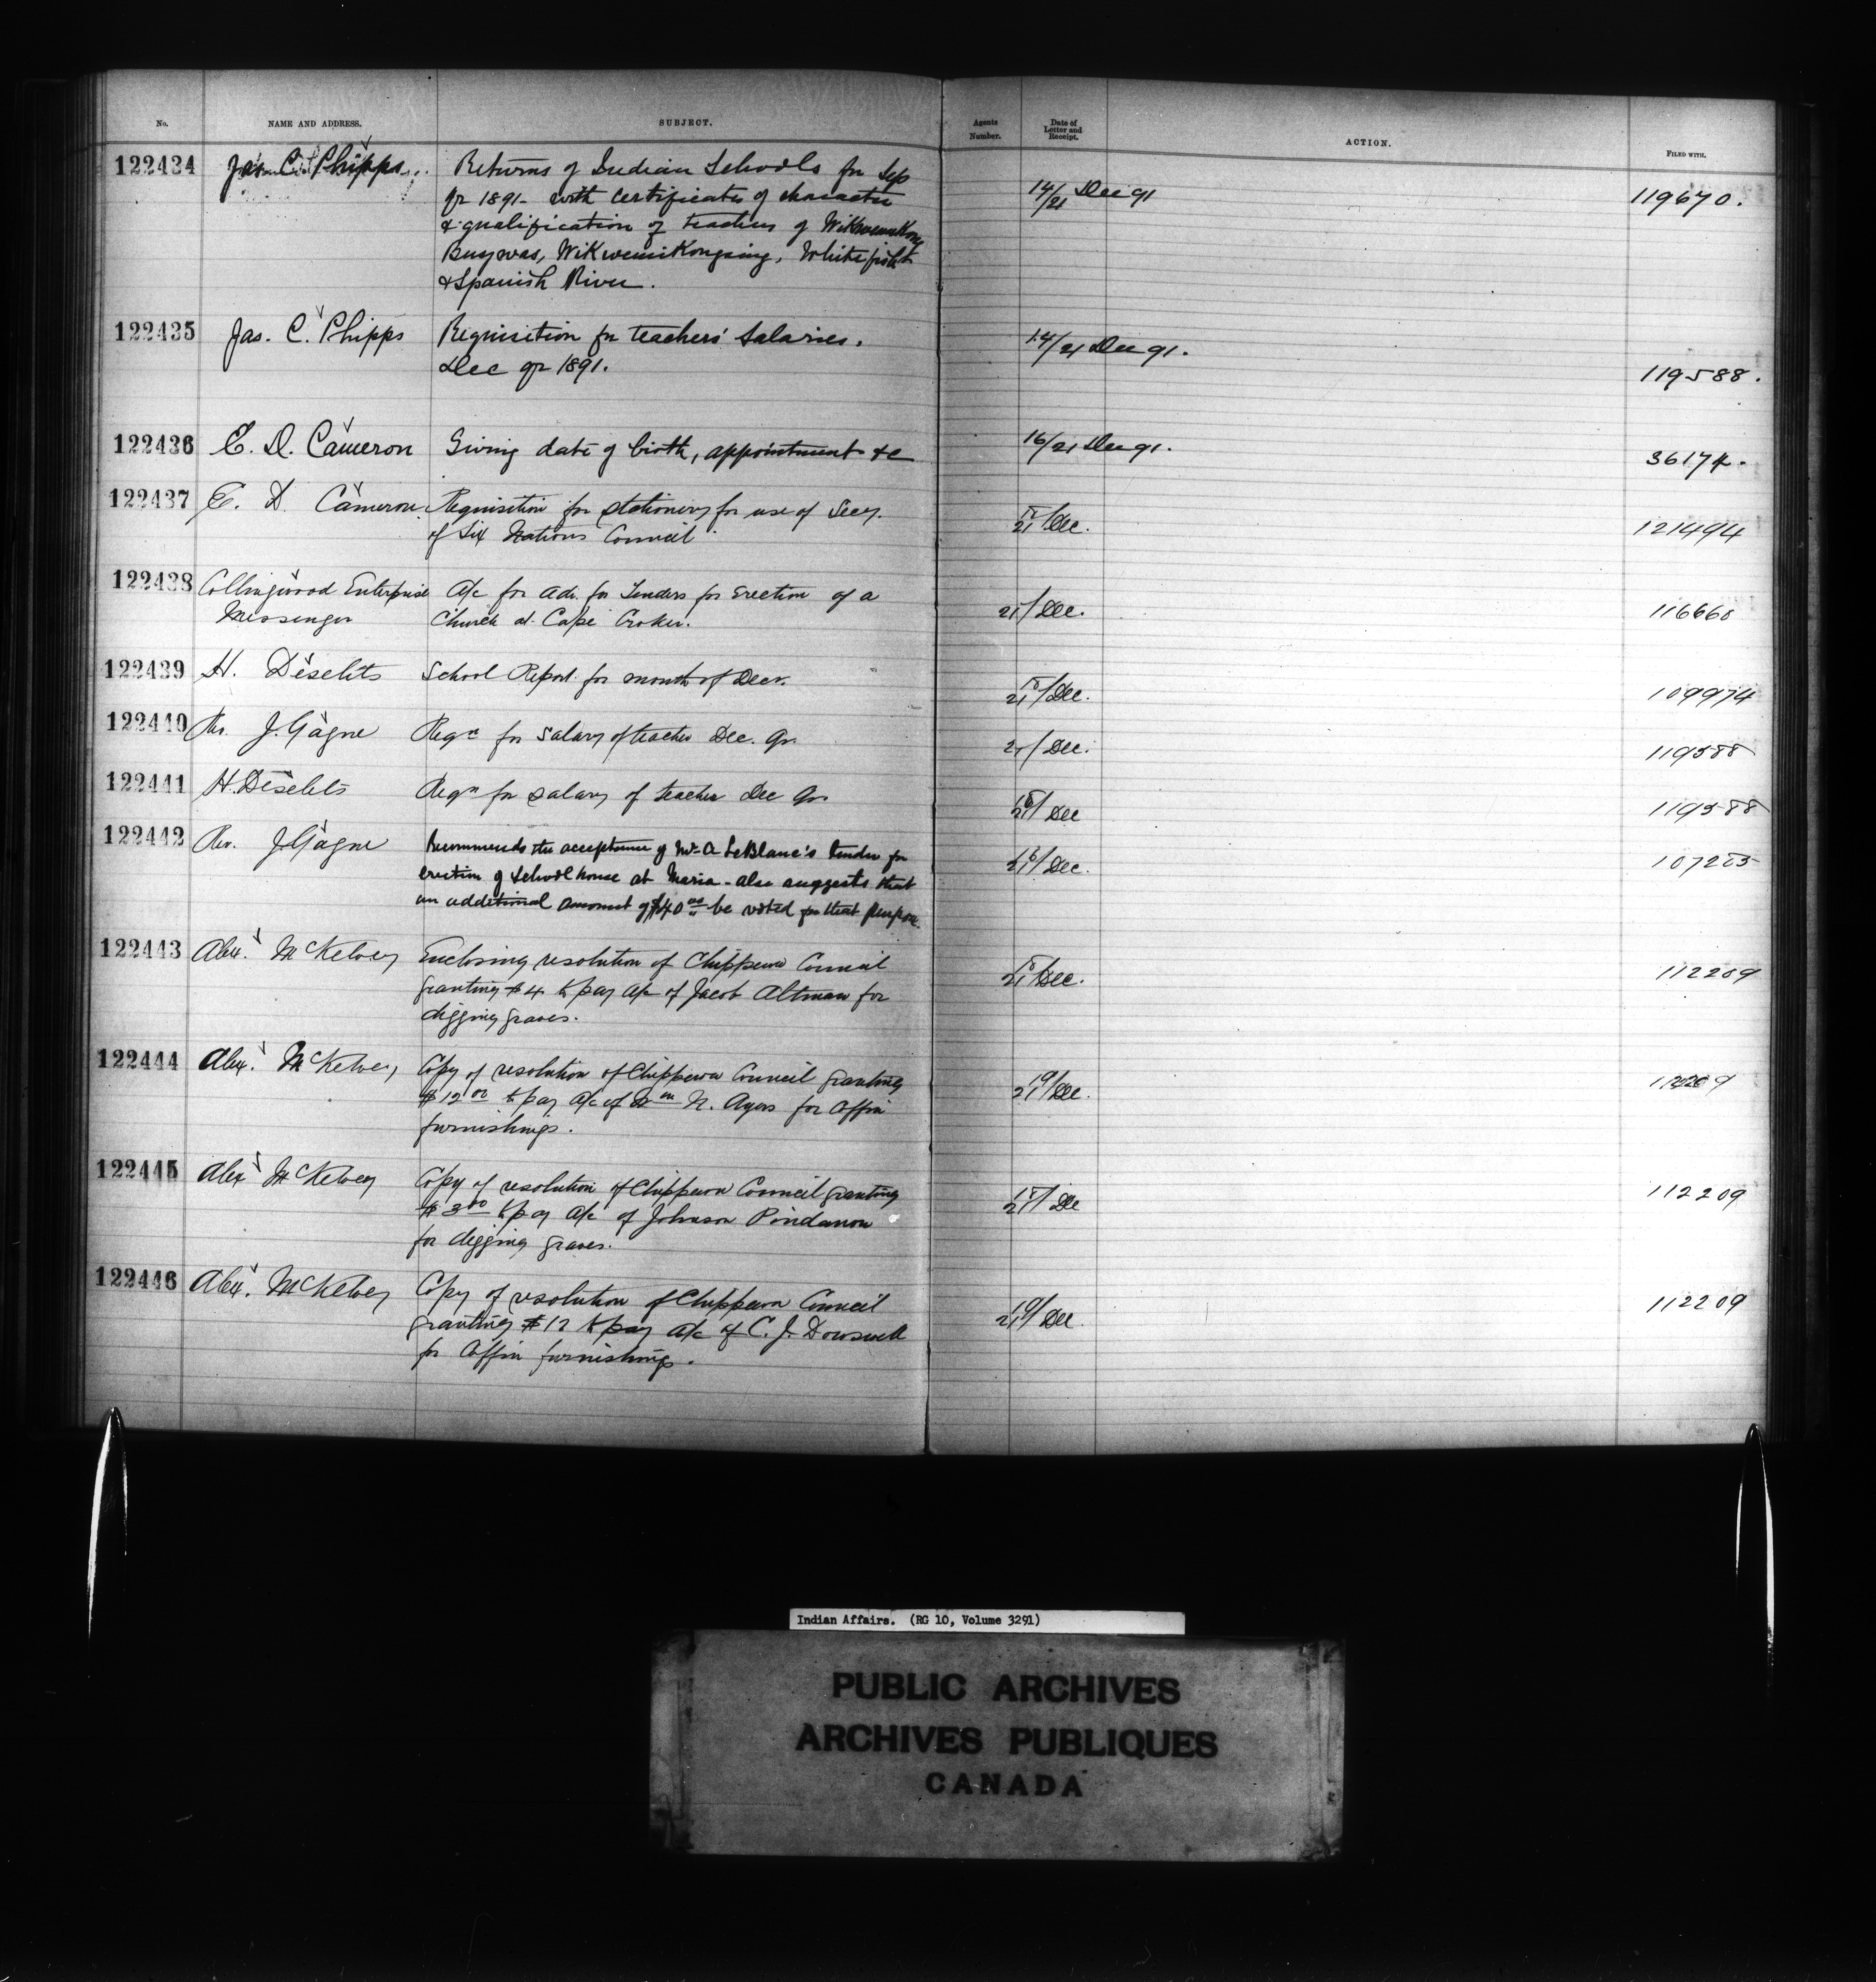 No. NAME AND ADDRESS. SUBJECT. Agents Number. Date of Letter and Receipt. ACTION. FILED WITH.
122434 Jas. C. Phipps Returns of Indian Schools for Sep 14/21 Dec 91 119670.
qr 1891 - with certificates of character
& qualification of teachers of Wikwemikong
Buzwas, Wikwemikongsing, Whitefish
& Spanish River.
122435 Jas. C. Phipps Requisition for teachers' salaries. 14/21 Dec 91.
Dec qr 1891. 119588.
122436 E. D. Cameron Giving date of birth, appointment &c 16/21 Dec 91. 36174.
122437 E. D. Cameron Requisition for stationery for use of Secy. 21/Dec. 121494
of Six Nations Council
122438 Collingwood Enterprise A/c for adv. for Tenders for Erection of a 21/Dec. 116660
Messenger Church at Cape Croker.
122439 H. Deselets School Report for month of Decr. 21/Dec. 109974
122440 Rev. J. Gagne Reqn for salary of teacher Dec. Qr. /Dec. 119588
122441 H. Deselets Reqn for salary of teacher Dec Qr. 21/Dec 119588
122442 Rev. J. Gagne Recommends the acceptance of Mr A LeBlanc's tender for 21/Dec. 107205
erection of School house at Maria - also suggests that
an additional amount of $40.00 be voted for that purpose.
122443 Alex. McKelvey Enclosing resolution of Chippewa Council 21/Dec. 112209
granting $4 to pay a/c of Jacob Altman for
digging graves.
122444 Alex. McKelvey Copy of resolution of Chippewa Council granting 19/21 Dec. 112209
$12 00 to pay a/c of Wm N. Ayers for Coffin
furnishings.
122445 Alex McKelvey Copy of resolution of Chippewa Council granting 21/Dec 112209
$3 00 to pay a/c of Johnson Pindanon
for digging graves.
122446 Alex. McKelvey Copy of resolution of Chippewa Council 19/21 Dec. 112209
granting $12 to pay a/c of C. J. Dowswell
for Coffin furnishings.
Indian Affairs. (RG 10, Volume 3291)
PUBLIC ARCHIVES
ARCHIVES PUBLIQUES
CANADA